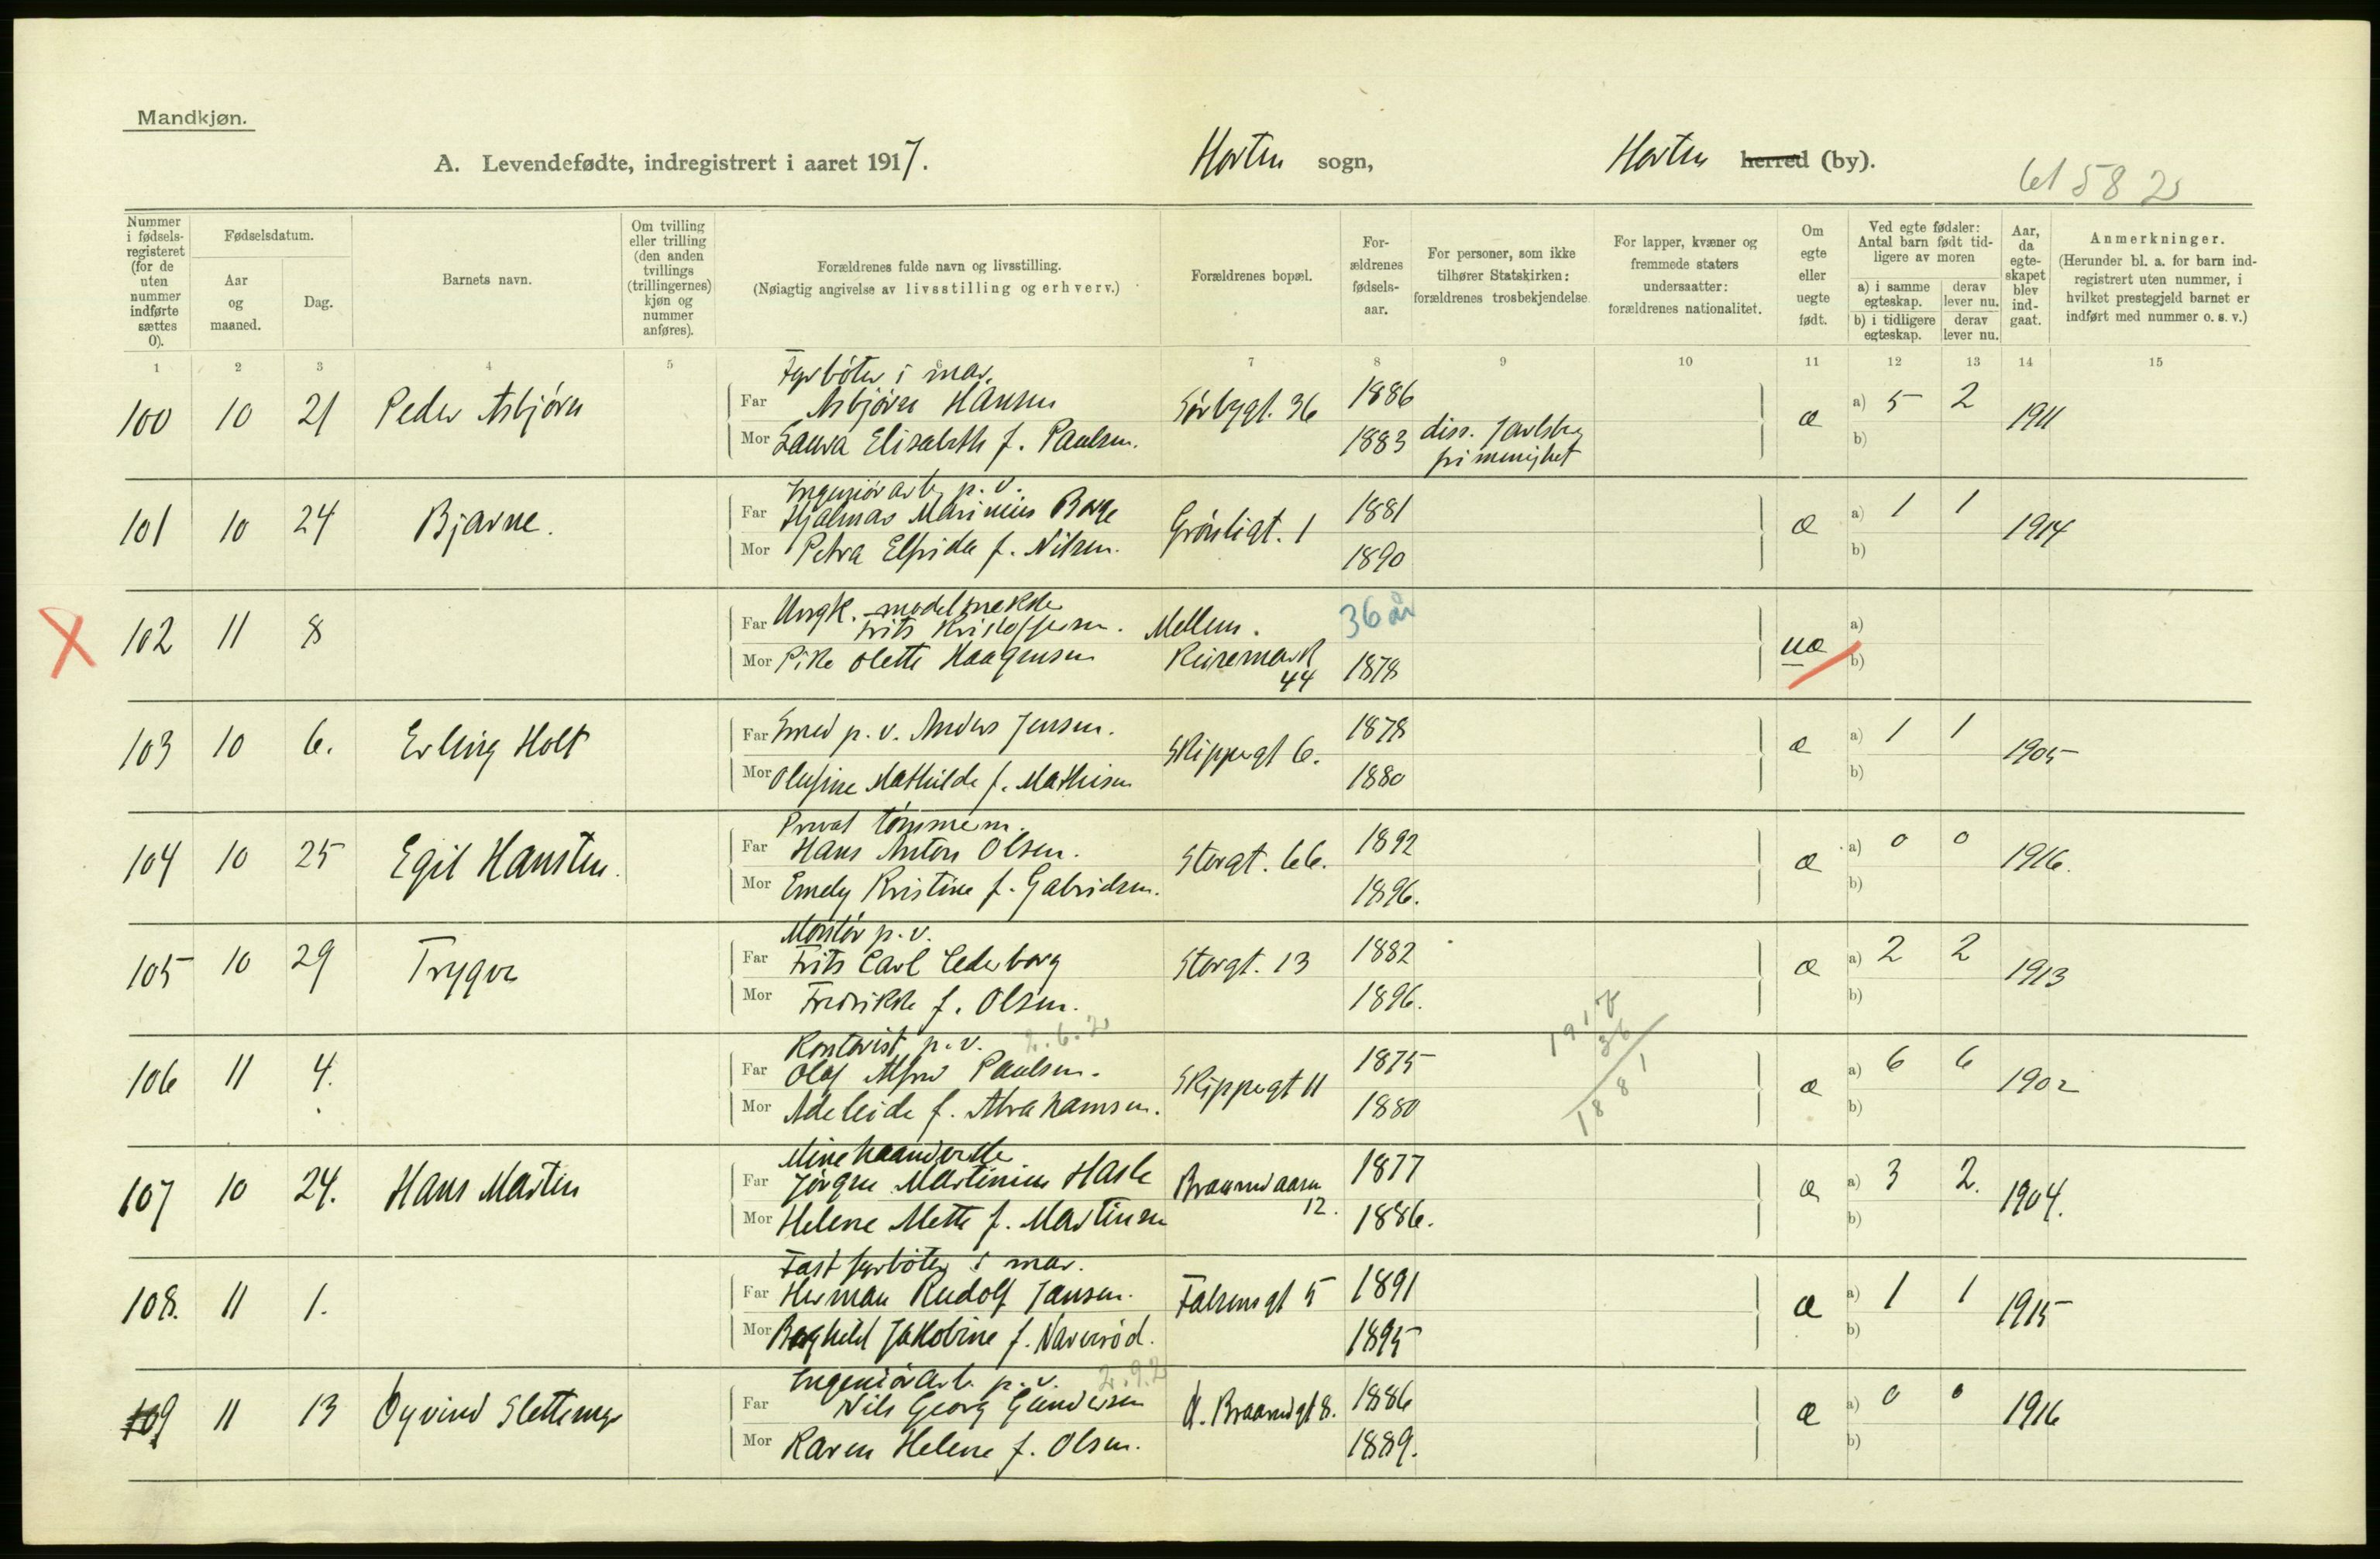 Mandkjøn.
A. Levendefødte, indregistrert i aaret 1917. Horten sogn, Horten herred (by).
Nummer i fødsels-registeret (for de uten nummer indførte sættes 0).
Fødselsdatum.
Aar og maaned.
Dag.
Barnets navn.
Om tvilling eller trilling (den anden tvillings (trillingernes) kjøn og nummer anføres).
Forældrenes fulde navn og livsstilling.
(Nøiagtig angivelse av livsstilling og erhverv.)
Forældrenes bopæl.
For-ældrenes fødsels-aar.
For personer, som ikke tilhører Statskirken: forældrenes trosbekjendelse
For lapper, kvæner og fremmede staters undersaatter: forældrenes nationalitet.
Om egte eller uegte født.
Ved egte fødsler: Antal barn født tid-ligere av moren
a) i samme egteskap.
derav lever nu.
b) i tidligere egteskap.
derav lever nu.
Aar, da egte-skapet blev ind-gaat.
Anmerkninger.
(Herunder bl. a. for barn ind-registrert uten nummer, i hvilket prestegjeld barnet er indført med nummer o. s. v.)
1 2 3 4 5 6 7 8 9 10 11 12 13 14 15
Fyrböter i mar.
100 10 21 Peder Asbjörn Far Asbjörn Hansen Sörbygt. 36 1886 æ a) 5 2 1911
Mor Laura Elisabeth f. Paulsen. 1883 diss. Jarlsberg b)
frimenighet
Ingeniörarb. p. v.
101 10 24 Bjarne. Far Hjalmar Marinius Borge Grönligt. 1 1881 æ a) 1 1 1914
Mor Petra Elfrida f. Nilsen. 1890 b)
Ungk. modelsnekker
102 11 8 Far Frits Kristoffersen. Mellem. 36 år uæ a)
Mor Pike Olette Haagensen 44 1878 b)
103 10 6. Erling Holt Far Smed p. v. Anders Jensen. Skippergt 6. 1878 æ a) 1 1 1905
Mor Olufine Mathilde f. Mathisen 1880 b)
Privat tömmerm.
104 10 25 Egil Hansten. Far Hans Anton Olsen. Storgt. 66. 1892 æ a) 0 0 1916.
Mor Emely Kristine f. Gabrielsen. 1896. b)
Montör p. v.
105 10 29 Trygve Far Frits Carl Cederborg Storgt. 13 1882 æ a) 2 2 1913
Mor Fredrikke f. Olsen. 1896. b)
Kontorist p. v.
106 11 4. Far Olaf Alfred Paulsen. Skippergt 11 1875 æ a) 6 6 1902
Mor Adeleide f. Abrahamsen. 1880 b)
1917
36
1881
Minehaandverker
107 10 24. Hans Martin Far Jörgen Martinius Hasle Braarudaasen 1877 æ a) 3 2. 1904.
Mor Helene Mette f. Martinsen 12. 1886. b)
Fast fyrböter i mar.
108. 11 1. Far Herman Rudolf Jansen. Falsensgt 5 1891 æ a) 1 1 1915
Mor Borghild Jakobine f. Naversöd. 1895 b)
Ingeniörarb. p. v.
109 11 13 Öyvind Far Nils Georg Gundersen Braarudgt 8. 1886 æ a) 0 0 1916
Mor Karen Helene f. Olsen. 1889. b)